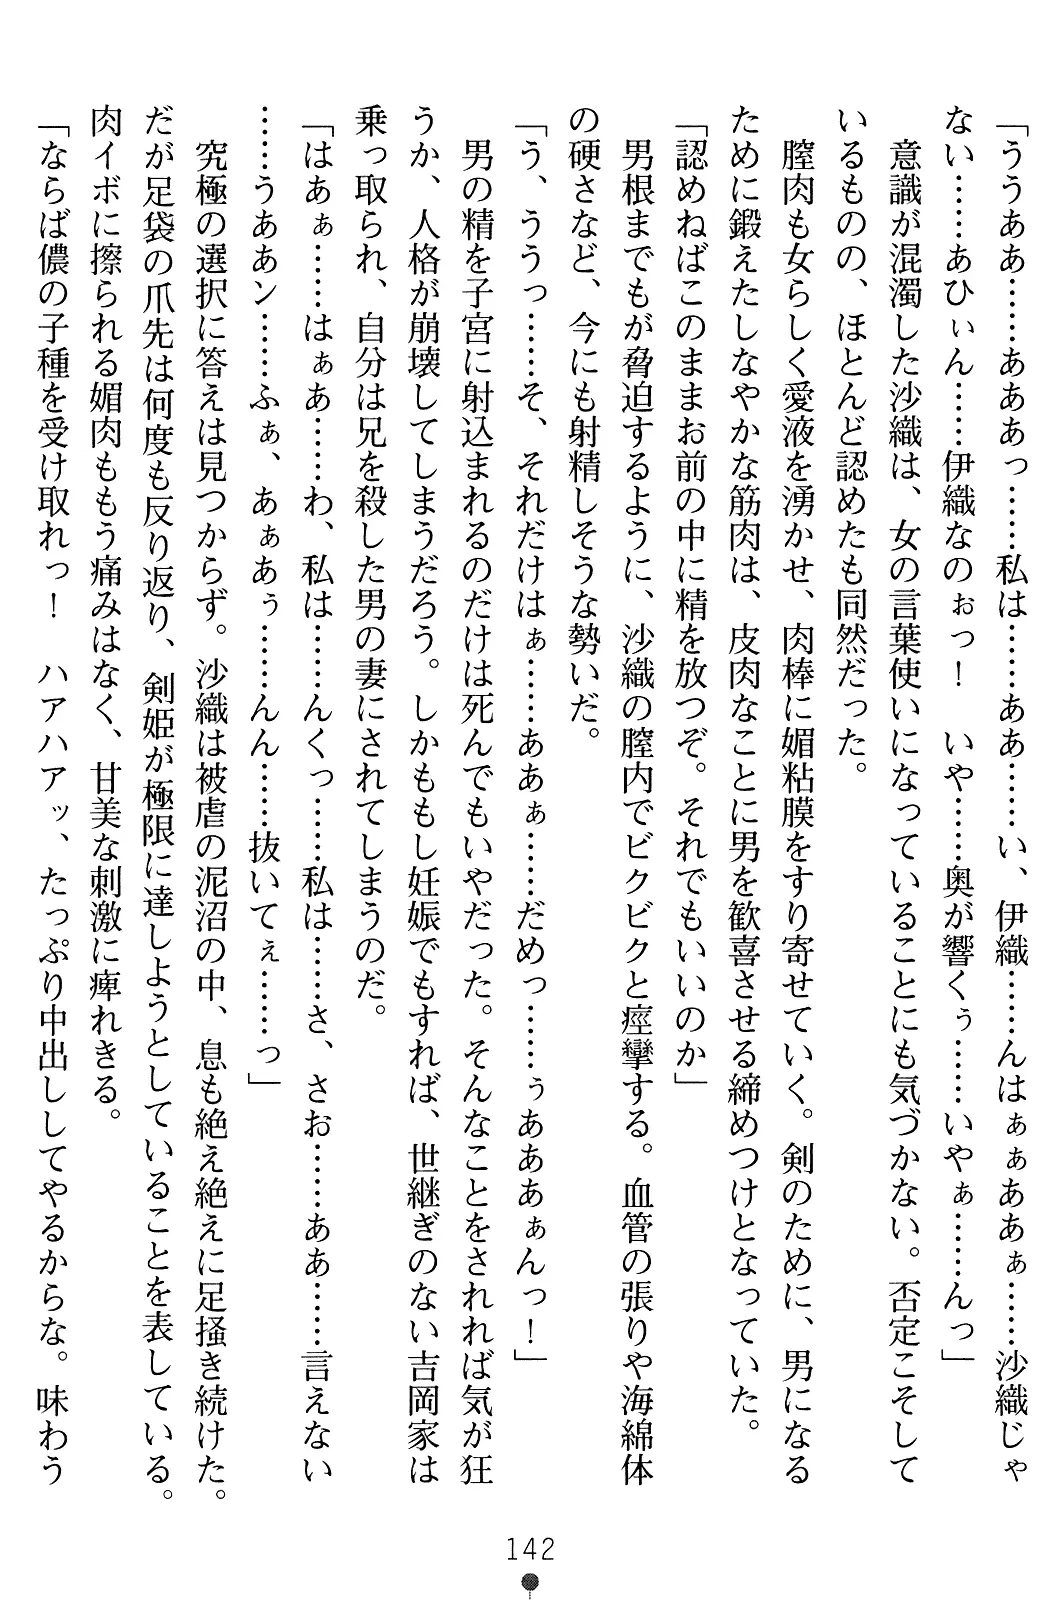 「ううああ……あああっ……私は……ああ……い、伊織……んはぁぁああぁ……沙織じゃ
ない……あひぃん……伊織なのぉっ！　いや……奥が響くぅ……いやぁ……んっ」
　意識が混濁した沙織は、女の言葉使いになっていることにも気づかない。否定こそして
いるものの、ほとんど認めたも同然だった。
　膣肉も女らしく愛液を湧かせ、肉棒に媚粘膜をすり寄せていく。剣のために、男になる
ために鍛えたしなやかな筋肉は、皮肉なことに男を歓喜させる締めつけとなっていた。
「認めねばこのままお前の中に精を放つぞ。それでもいいのか」
　男根までもが脅迫するように、沙織の膣内でビクビクと痙攣する。血管の張りや海綿体
の硬さなど、今にも射精しそうな勢いだ。
「う、ううっ……そ、それだけはぁ……ああぁ……だめっ……ぅあああぁんっ！」
　男の精を子宮に射込まれるのだけは死んでもいやだった。そんなことをされれば気が狂
うか、人格が崩壊してしまうだろう。しかももし妊娠でもすれば、世継ぎのない吉岡家は
乗っ取られ、自分は兄を殺した男の妻にされてしまうのだ。
「はあぁ……はぁあ……わ、私は……んくっ……私は……さ、さお……ああ……言えない
……うああン……ふぁ、あぁあぅ……んん……抜いてぇ……っ」
　究極の選択に答えは見つからず。沙織は被虐の泥沼の中、息も絶え絶えに足掻き続けた。
だが足袋の爪先は何度も反り返り、剣姫が極限に達しようとしていることを表している。
肉イボに擦られる媚肉ももう痛みはなく、甘美な刺激に痺れきる。
「ならば儂の子種を受け取れっ！　ハアハアッ、たっぷり中出ししてやるからな。味わう
142